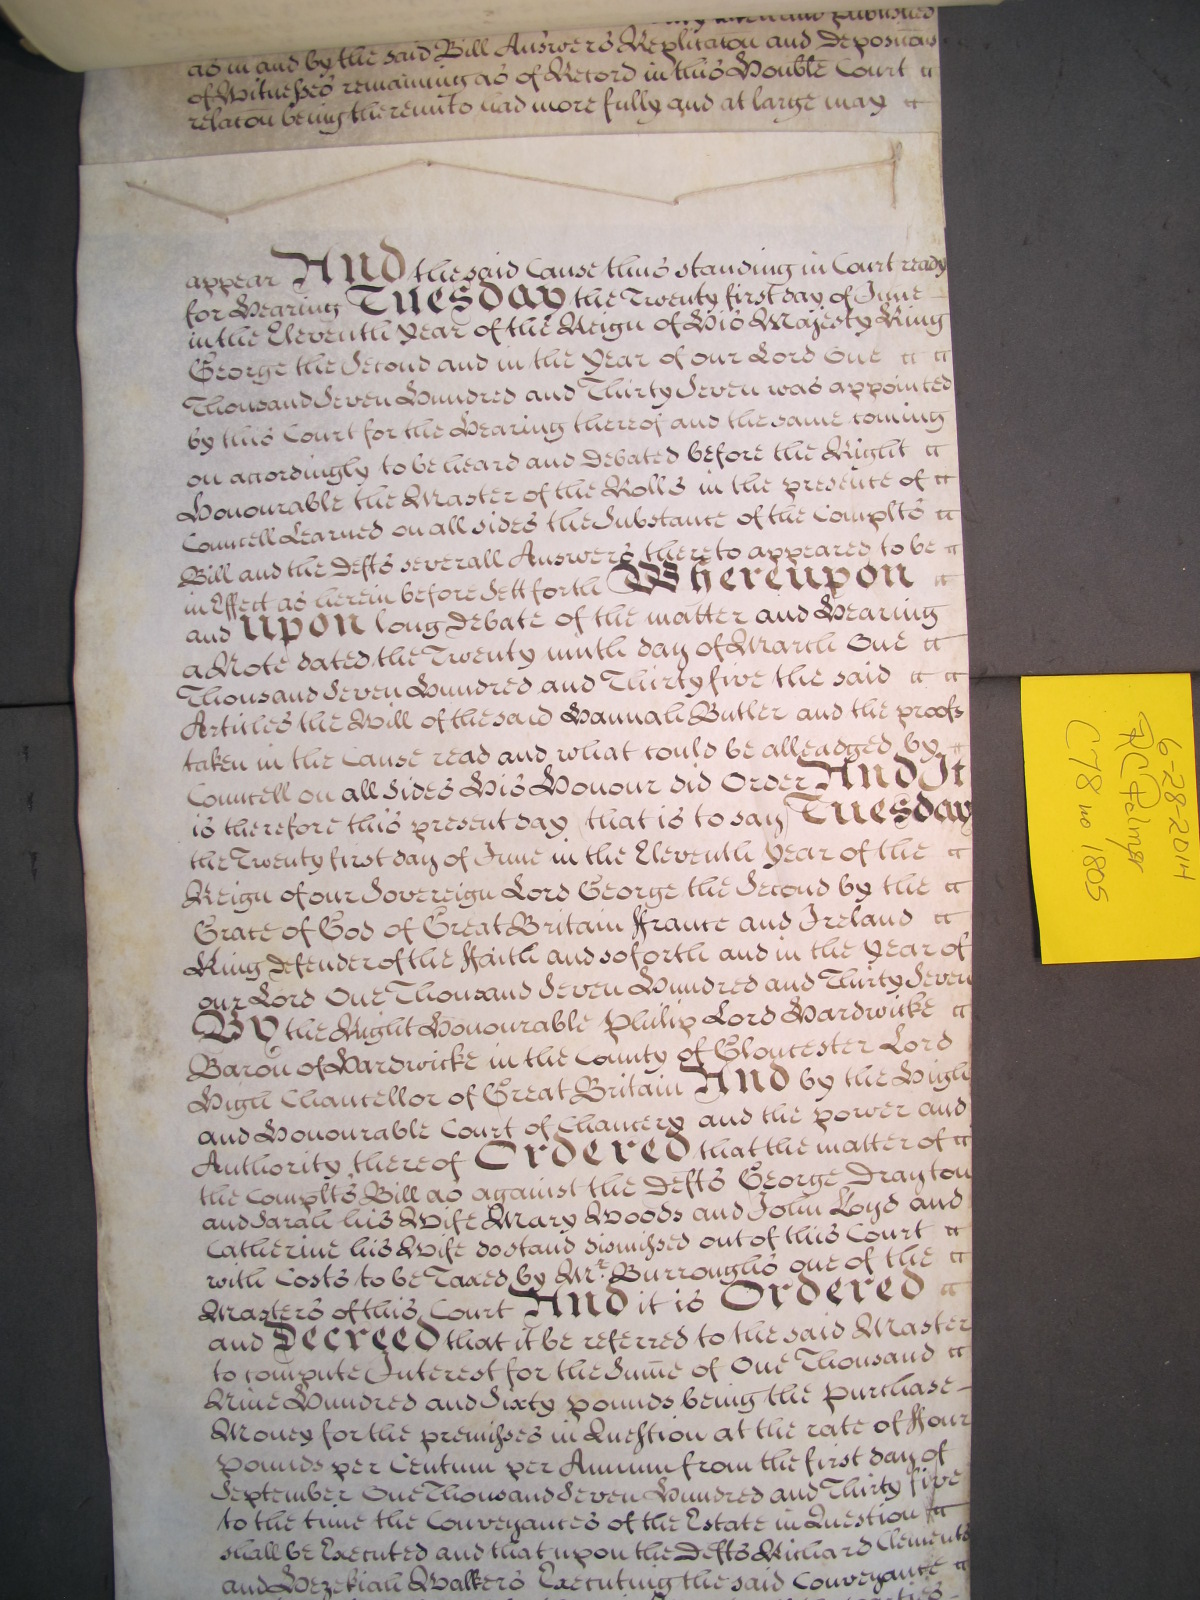 and Published
as in and by the said Bill Answers Replicaton and Deposicons
of Witnesses remaining as of Record in this Honble Court
relacon being thereunto had more fully and at large may
appear And the said Cause thus standing in Court ready
for Hearing Tuesday the Twenty first day of June
in the Eleventh Year of the Reign of His Majesty King
George the Second and in the Year of our Lord One
Thousand Seven Hundred and Thirty Seven was appointed
by this Court for the Hearing thereof and the same coming
on accordingly to be heard and Debated before the Right
Honourable the Master of the Rolls in the presence of
Councell Learned on all sides the Substance of the Complts
Bill and the Defts severall Answers thereto appeared to be
in Effect as herein before Sett forth Whereupon
and upon long Debate of the matter and Hearing
a Note dated the Twenty ninth day of March One
Thousand Seven Hundred and Thirty five the said
Articles the Will of the said Hannah Butler and the proofs
taken in the Cause read and what could be alleadged by
Councell on all Sides His Honour did Order And It
is therefore this present day (that is to say) Tuesday
the Twenty first day of June in the Eleventh Year of the
Reign of our Sovereign Lord George the Second by the
Grace of God of Great Britain ffrance and Ireland
King Defender of the ffaith and so forth and in the Year of
our Lord One Thousand Seven Hundred and Thirty Seven
By the Right Honourable Philip Lord Hardwicke
Baron of Hardwicke in the County of Gloucester Lord
High Chancellor of Great Britain And by the High
and Honourable Court of Chancery and the power and
Authority thereof Ordered that the matter of
the Complts Bill as against the Defts George Drayton
and Sarah his Wife Mary Woods and John Loyd and
Catherine his Wife do stand dismissed out of this Court
with Costs to be Taxed by Mr. Burroughs one of the
Masters of this Court And it is Ordered
and Decreed that it be referred to the said Master
to compute Interest for the Sume of One Thousand
Nine Hundred and Sixty pounds being the Purchase
Money for the premisses in Question at the rate of ffour
pounds per Centum per Annum from the first day of
September One Thousand Seven Hundred and Thirty five
to the time the Conveyances of the Estate in Question
shall be Executed and that upon the Defts Richard Clements
and Hezekiah Walkers Executing the said Conveyance
6-28-2014
RCPalmer
C78 no 1805